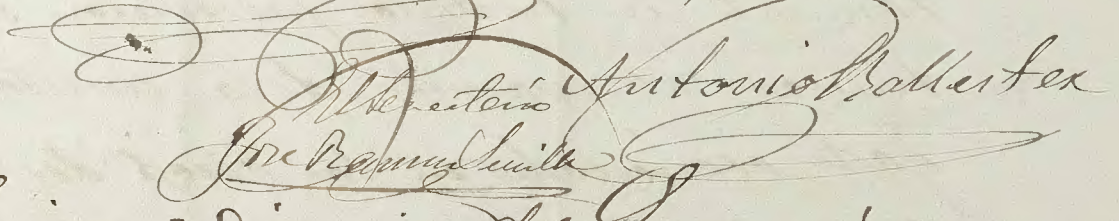 El Secretario Antonio Ballester
Jose Ramon Sevilla